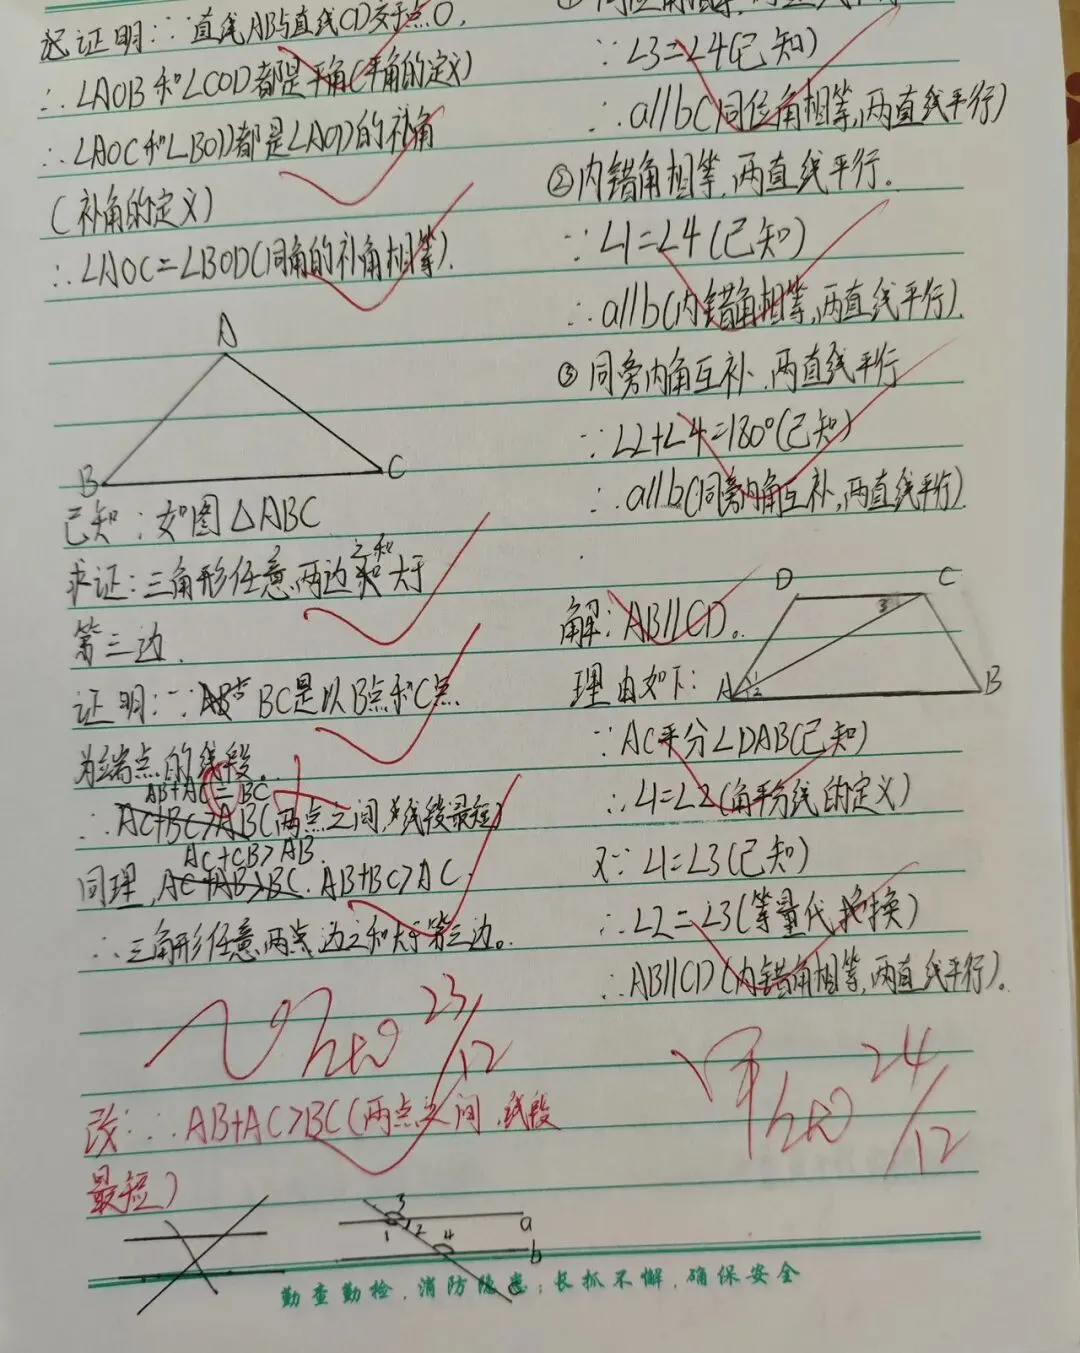 证明:∵直线AB与直线CD交于点O,
∴∠AOB和∠COD都是平角(平角的定义)
∴∠AOC和∠BOD都是∠AOD的补角
(补角的定义)
∴∠AOC=∠BOD(同角的补角相等).
A
B
C
已知:如图△ABC
求证:三角形任意两边之和大于
第三边.
证明:∵BC是以B点和C点
为端点的线段。
AB+AC=BC
∴AC+BC>AB(两点之间,线段最短)
AC+CB>AB.
同理,AC+AB>BC.AB+BC>AC.
∴三角形任意两边之和大于第三边。
23/12
改:∴AB+AC>BC(两点之间,线段
最短)
3
1
2
4
a
b
∵∠3=∠4(已知)
∴a∥b(同位角相等,两直线平行)
②内错角相等,两直线平行。
∵∠1=∠4(已知)
∴a∥b(内错角相等,两直线平行).
③同旁内角互补,两直线平行
∵∠2+∠4=180°(已知)
∴a∥b(同旁内角互补,两直线平行).
D
C
3
A
1
2
B
解:AB∥CD。
理由如下:
∵AC平分∠DAB(已知)
∴∠1=∠2(角平分线的定义)
又∵∠1=∠3(已知)
∴∠2=∠3(等量代换)
∴AB∥CD(内错角相等,两直线平行)。
24/12
勤查勤检,消防隐患;长抓不懈,确保安全